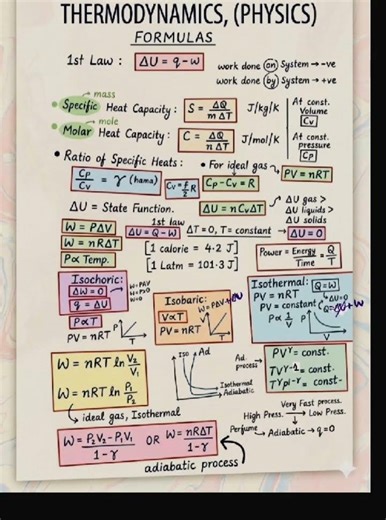 THERMODYNAMICS, (PHYSICS)
FORMULAS
1st Law : ΔU = q-w
work done on System → -ve
work done by System → +ve
mass
• Specific Heat Capacity : S = ΔQ / mΔT J/kg/k
At const. Volume Cv
mole
• Molar Heat Capacity : C = ΔQ / nΔT J/mol/k
At const. pressure Cp
• Ratio of Specific Heats :
• For ideal gas → PV = nRT
Cp/Cv = γ (hama)
Cv = f/2 R
Cp-Cv = R
ΔU = State Function.
ΔU = nCvΔT
ΔU gas > ΔU liquids > ΔU solids
W = PΔV
W = nRΔT
P∝ Temp.
1st law
ΔU = Q-W
ΔT=0, T= constant → ΔU = 0
[1 calorie = 4.2 J]
[1 Latm = 101.3 J]
Power = Energy/Time = Q/T
Isochoric:
ΔW = 0
q = ΔU
W=PΔV
W=P×0
W=0
P∝T
PV = nRT
P
T
Isobaric:
W=PΔV
V∝T
PV = nRT
V
T
Isothermal: Q=W
PV = nRT
ΔU=0
PV = constant
P∝ 1/V
P
V
W = nRT ln V₂/V₁
W = nRT ln P₁/P₂
ideal gas, Isothermal
Iso
Ad
Isothermal
Adiabatic
Ad. process
PVγ = const.
TVγ-1 = const.
TγP1-γ = const-
Very Fast process.
High Press. → Low Press.
Perfume → Adiabatic → q=0
W = P₂V₂ - P₁V₁ / 1-γ OR W = nRΔT / 1-γ
adiabatic process